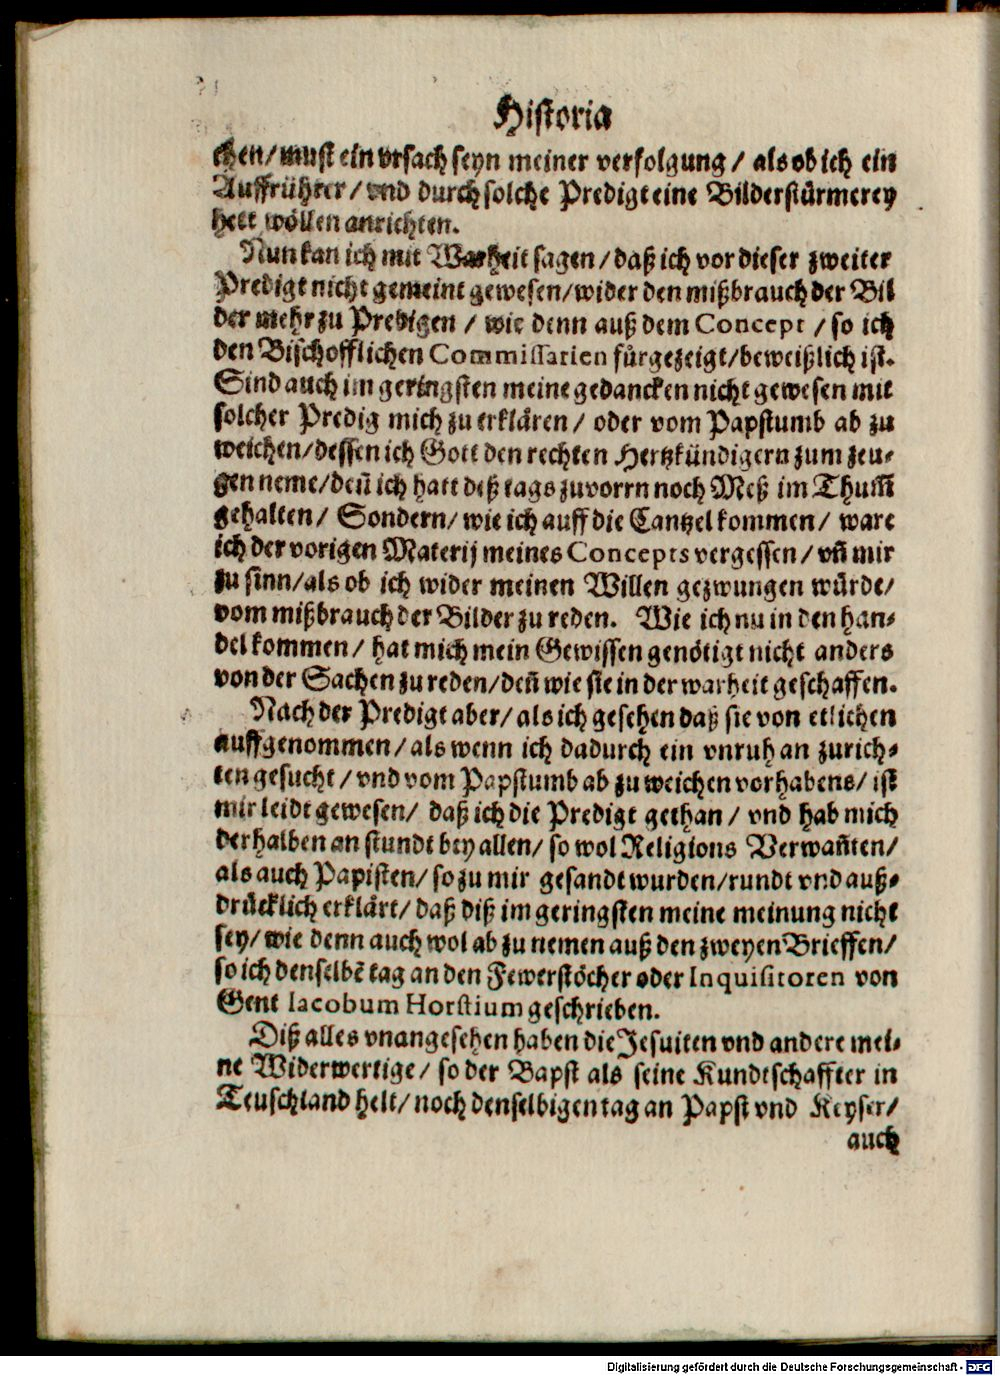 Historia
chen/ must ein vrsach seyn meiner verfolgung / als ob ich ein
Auffrührer / vnd durch solche Predigt eine Bilderstürmerey
hett wöllen anrichten.
Nun kan ich mit Warheit sagen / daß ich vor dieser zweiter
Predigt nicht gemeint gewesen/ wider den mißbrauch der Bil
der mehr zu Predigen / wie denn auß dem Concept / so ich
den Bischofflichen Commissarien fürgezeigt/ beweißlich ist.
Sind auch im geringsten meine gedancken nicht gewesen mit
solcher Predig mich zu erklären / oder vom Papstumb ab zu
weichen/ dessen ich Gott den rechten Hertzkündigern zum zeu-
gen neme/ deñ ich hatt deß tags zuvorrn noch Meß im Thum̃
gehalten/ Sondern/ wie ich auff die Cantzel kommen/ ware
ich der vorigen Materij meines Concepts vergessen/ vñ mir
zu sinn/ als ob ich wider meinen Willen gezwungen würde/
vom mißbrauch der Bilder zu reden. Wie ich nu in den han-
del kommen/ hat mich mein Gewissen genötigt nicht anders
von der Sachen zu reden/ deñ wie sie in der warheit geschaffen.
Nach der Predigt aber/ als ich gesehen daß sie von etlichen
auffgenommen/ als wenn ich dadurch ein vnruh an zurich-
ten gesucht / vnd vom Papstumb ab zu weichen vorhabens/ ist
mir leidt gewesen/ daß ich die Predigt gethan / vnd hab mich
derhalben an stundt bey allen/ so wol Religions Verwañten/
als auch Papisten/ so zu mir gesandt wurden/ rundt vnd auß-
drücklich erklärt/ daß diß im geringsten meine meinung nicht
sey/ wie denn auch wol ab zu nemen auß den zweyen Brieffen/
so ich denselbẽ tag an den Fewerstöcher oder Inquisitoren von
Gent Iacobum Horstium geschrieben.
Diß alles vnangesehen haben die Jesuiten vnd andere mei-
ne Widerwertige/ so der Bapst als seine Kundtschaffter in
Teuschland helt/ noch denselbigen tag an Papst vnd Keyser/
auch
Digitalisierung gefördert durch die Deutsche Forschungsgemeinschaft - DFG